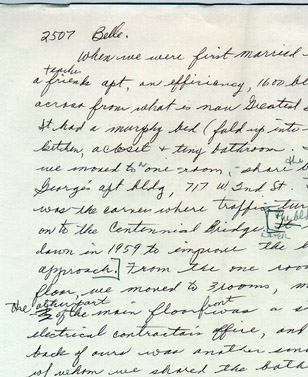 2507 Belle.
When we were first married
teacher
a friends apt, an efficiency, 1600 bl
across from what is now
It had a murphy bed (fold up into
kitchen, a closet + tiny bathroom.
the
we moved to "one room, share b
George's apt bldg, 717 W. 2nd St.
was the corner where traffic tur
on to the Centennial Bridge. [It
down in 1959 to improve the b
approach.] From the one room
floor, we moved to 3 rooms, m
the other part front
of the main floor was a s
electrical contractors office, and
back of ours was another son
of whom we shared the bath